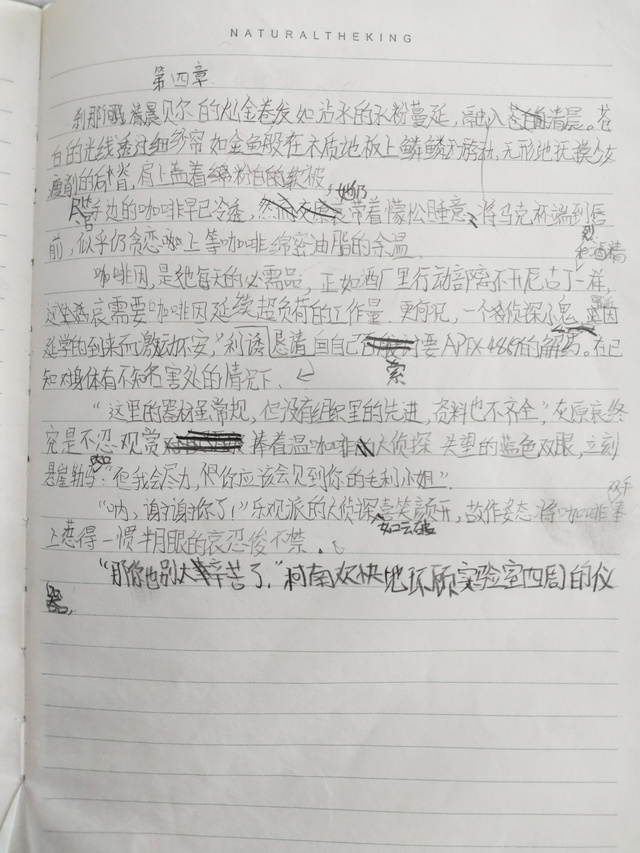 NATURALTHEKING
第四章
刹那间清晨贝尔的灿金卷发如沾水的水粉蔓延，融入清晨。苍
白的光线透过细纱帘如金鱼般在木质地板上鳞鳞游动，无形地抚摸少女
瘦削的后背，肩上盖着绵粉白的软被，
手边的咖啡早已冷透，她仍带着懵松睡意，将马克杯端到唇
前，似乎仍贪恋上等咖啡绵密油脂的余温。
咖啡因，是她每天的必需品，正如酒厂里行动部离不开尼古丁和酒精一样，
哀需要咖啡因延续超负荷的工作量。更何况，一个侦探小鬼，因
延学的到来而激动不安，利诱恳请向自己索要APTX4869的解药。在已
知对身体有不知名害处的情况下、
“这里的器材虽常规，但没有组织里的先进，资料也不齐全，”灰原哀终
究是不忍观赏捧着温咖啡的大侦探失望的蓝色双眼，立刻
悬崖勒马：“但我会尽力，你应该会见到你的毛利小姐”.
“呐，谢谢你了！”乐观派的大侦探喜笑颜开，故作姿态双手将咖啡奉
上惹得一惯半月眼的哀忍俊不禁。
“那你也别太辛苦了，”柯南欢快地环顾实验室四周的仪
器，